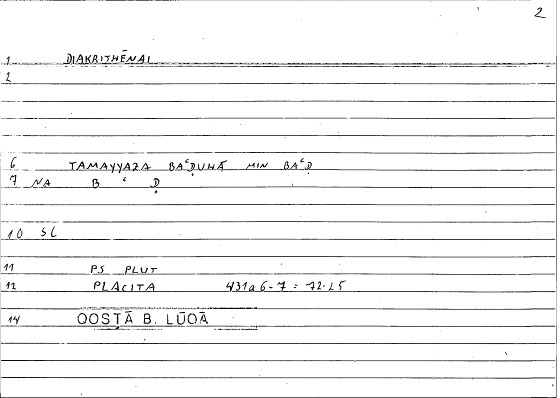 2
1 DIAKRITHĒNAI
2
6 TAMAYYAZA BAʿḌUHĀ MIN BAʿḌ
7 NA B ʿ Ḍ
10 SC
11 PS PLUT
12 PLACITA 431a6-7 = 72.25
14 QOSṬĀ B. LŪQĀ